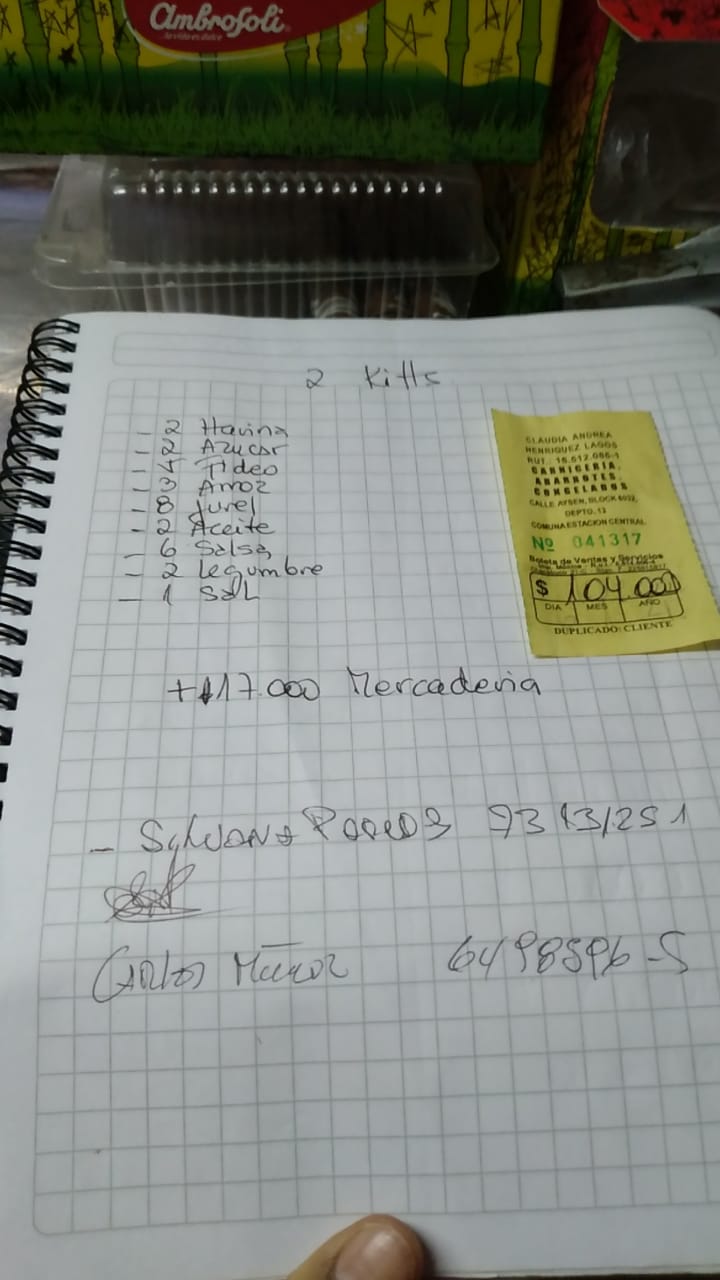 Ambrosoli
la vida es dulce
2 Kitts
- 2 Harina
- 2 Azucar
- 5 Fideo
- 3 Arroz
- 8 Jurel
- 2 Aceite
- 6 Salsa
- 2 Legumbre
- 1 Sal
CLAUDIA ANDREA
HENRIQUEZ LAGOS
RUT.: 16.612.086-1
CARNICERIA,
ABARROTES,
CONGELADOS
CALLE AYSEN, BLOCK 6032,
DEPTO. 13
COMUNA ESTACION CENTRAL
Nº 041317
Boleta de Ventas y Servicios
$ 104.000
DIA MES AÑO
DUPLICADO: CLIENTE
+$17.000 Mercaderia
- Sylvana
Carlos Muñoz 6498596-5